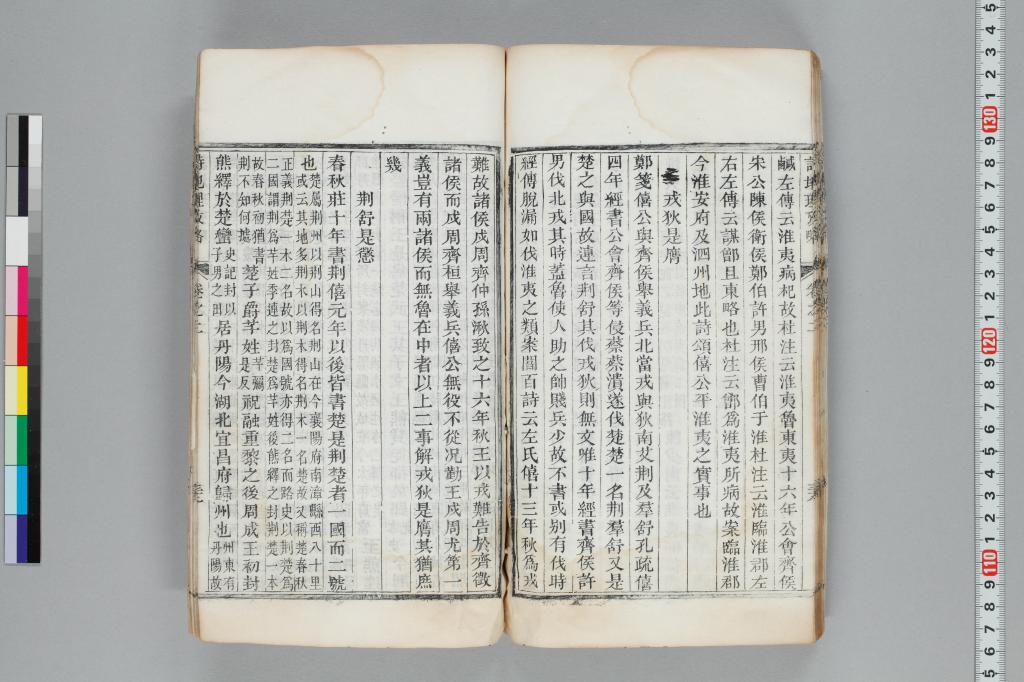 鹹左傳云淮夷病杞故杜注云淮夷魯東夷十六年公會齊侯
宋公陳侯衛侯鄭伯許男邢侯曹伯于淮杜注云淮臨淮郡左
右左傳云謀鄫且東略也杜注云鄫爲淮夷所病故案臨淮郡
今淮安府及泗州地此詩頌僖公平淮夷之實事也
戎狄是膺
鄭箋僖公與齊侯舉義兵北當戎與狄南艾荆及羣舒孔疏僖
四年經書公會齊侯等侵蔡蔡潰遂伐楚楚一名荆羣舒又是
楚之與國故連言荆舒其伐戎狄則無文唯十年經書齊侯許
男伐北戎其時蓋魯使人助之帥賤兵少故不書或别有伐時
經傳脱漏如伐淮夷之類案閻百詩云左氏僖十三年秋爲戎
難故諸侯戍周齊仲孫湫致之十六年秋王以戎難告於齊徵
諸侯而戍周齊桓舉義兵僖公無役不從况勤王戍周尤第一
義豈有兩諸侯而無魯在中者以上二事解戎狄是膺其猶庶
幾
荆舒是懲
春秋莊十年書荆僖元年以後皆書楚是荆楚者一國而二號
也楚居荆州以荆山得名荆山在今襄陽府南漳縣西八十里
或云其地多荆木以荆木得名荆木一名楚故又稱楚春秋
正義荆楚一木二名故以爲國號亦得二名而路史以荆楚爲
二國謂荆爲芈姓季連之封楚爲芈姓後熊繹之封荆楚一本
故春秋初猶書
荆不知何據
楚子爵芈姓芈彌
是反
祝融重黎之後周成王初封
熊繹於楚蠻史記封以
子男之田
居丹陽今湖北宜昌府歸州也州東有
丹陽故
詩地理攷略
卷之二